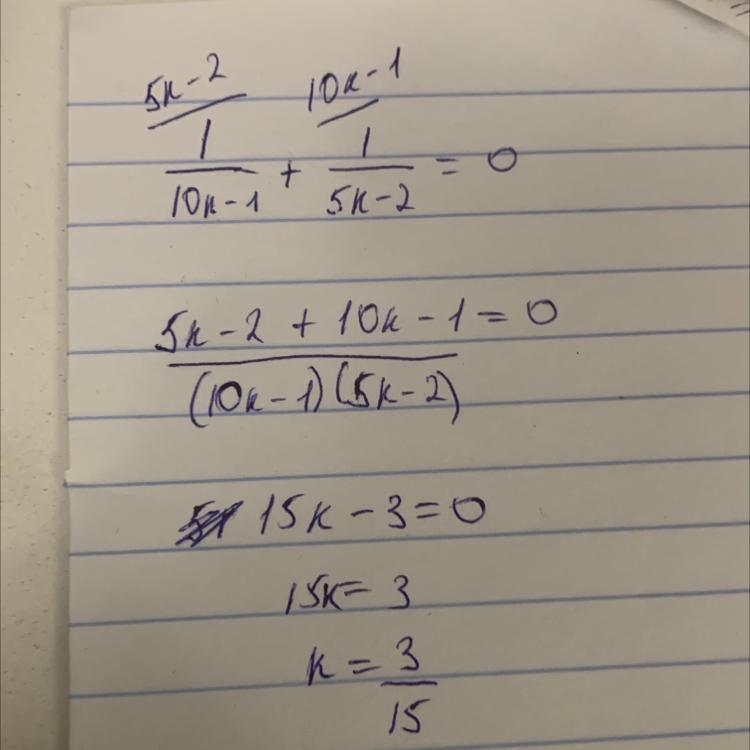 5k-2 10k-1
1/(10k-1) + 1/(5k-2) = 0
(5k-2 + 10k-1)/((10k-1)(5k-2)) = 0
15k-3=0
15k=3
k = 3/15